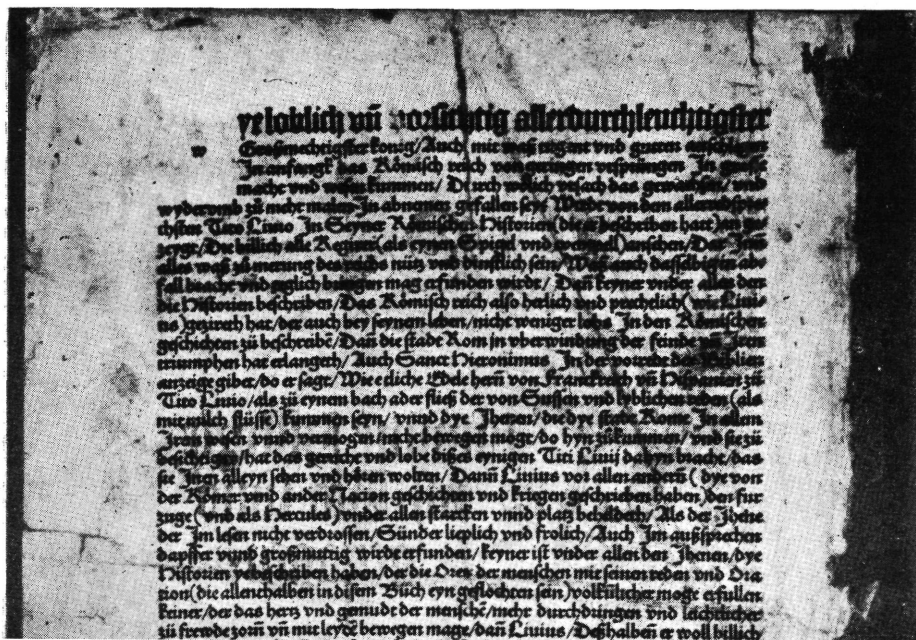 ye loblich vñ vorsichtig allerdurchleuchtigster
w Großmechtigster konig/Auch mit waß
In anfangk das Römisch reich von geringen vrsprungen In
macht vnd wesen kummen/ Durch wölich vrsach das gewachsen/vnd
wyderumb zů mehr malen In abnemen gefallen seye Würde von dem
chsten Tito Liuio In Seyner Römischen Historien (die er beschriben hatt) an ge
zeygt/Die billich alle Regirer (als eynen Spigel vnd ansehen/Dar Inn
alles waß zů merung des reichs nütz vnd dinstlich sein/Was auch dasselbig in abe
fall bracht vnd bringen mag erfunden wirdt/ Dañ keyner vnder allen den
die Historien beschriben/Das Römisch reich also herlich vnd (wie Liui
us) geziert hat/der auch bey seynem leben/nicht weniger lobs In den Römischen
geschichten zů beschribē/Dañ die stadt Rom jn vberwindung der feinde vñ Iren
triumphen hat erlangeth/Auch Sanct Hieronimus In der vorrede der Biblien
anzeige gibet/do er sagt/Wie etliche Edele herñ von Franckreich vñ Hispanien zů
Tito Liuio/als zů eynem bach ader fließ der von Süssen vnd lyblichen reden (als
mit milch flüsse) kummen seyn/ vnnd dye Ihenen/die dye stadt Rome In allem
Iren wesen vnnd vermogen/nicht bewegen mögt/do hyn zů kummen/vnd sie zů
besichtigen/hat das gerücht vnd lobe dißes eynigen Titi Liuij dahyn bracht/das
sie Inen alleyn sehen vnd hören wolten/Dann Liuius vor allen anderñ (dye von
der Römer vnnd ander Nacion geschichten vnd kriegen geschrieben haben) den fur
zuge (vnd als Hercules) vnder allen starcken vnnd platz behelderh/Als der Ihene
der Im lesen nicht verdrossen/Sünder lieplich vnd frolich/Auch Im außsprechen
dapffer vnnd großmuttig wirdt erfunden/keyner ist vnder allen den Ihenen/dye
Historien ye beschrieben haben/der die Oren der menschen mit seinen reden vnd Ora
tion (die allenthalben in disem Bůch eyn geflochten sein) volkümlicher mogt erfullen
keiner/der das hertz vnd gemudt der menschē/mehr durchdringen vnd leichtlicher
zů frewde zorñ vñ mit leydē bewegen mage/dañ Liuius/Deßhalben er woll billich